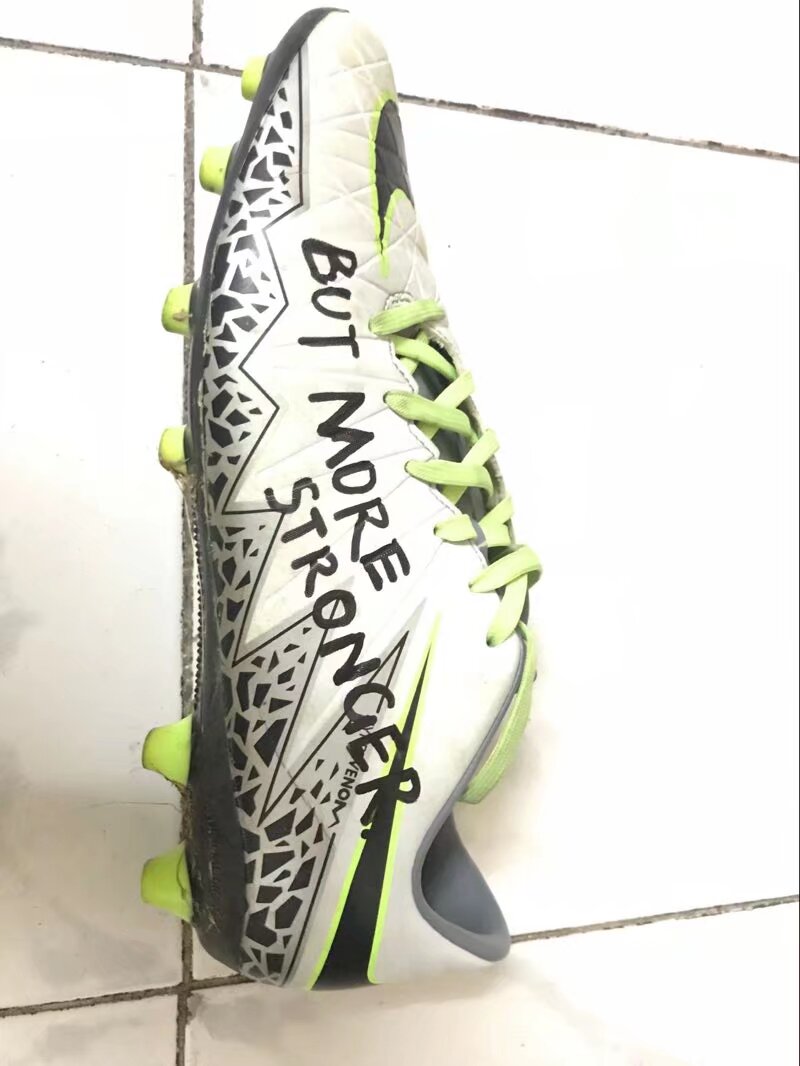 BUT MORE
STRONGER.
VENOM